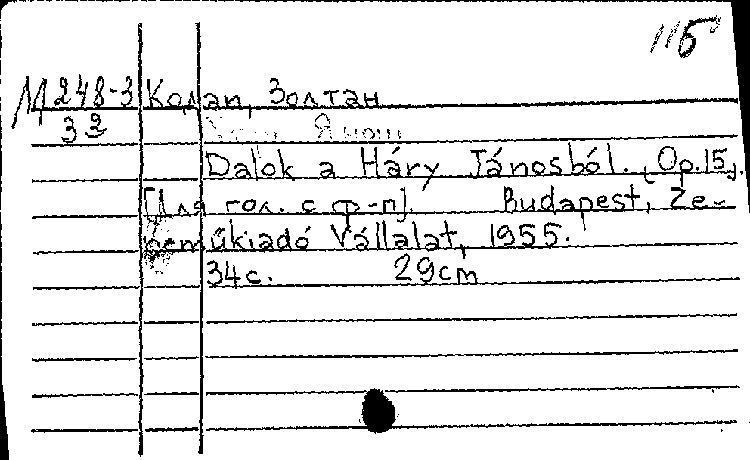 115
М 248-3 Кодаи, Золтан
33 Хари Янош
Dalok a Háry Jánosból. [Op.15].
[Для гол. с ф-п]. Budapest, Ze-
neműkiadó Vállalat, 1955.
34с. 29cm